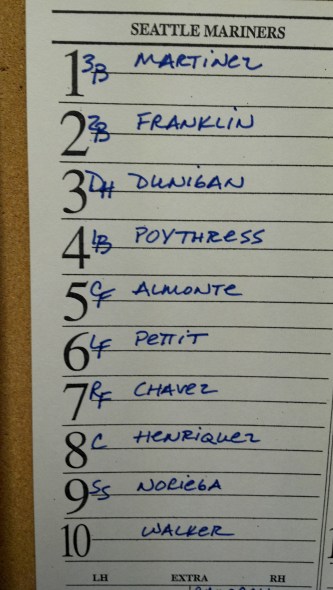 SEATTLE MARINERS
1 3B MARTINEZ
2 2B FRANKLIN
3 DH DUNIGAN
4 1B POYTHRESS
5 CF ALMONTE
6 LF PETTIT
7 RF CHAVEZ
8 C HENRIQUEZ
9 SS NORIEGA
10 WALKER
LH EXTRA RH